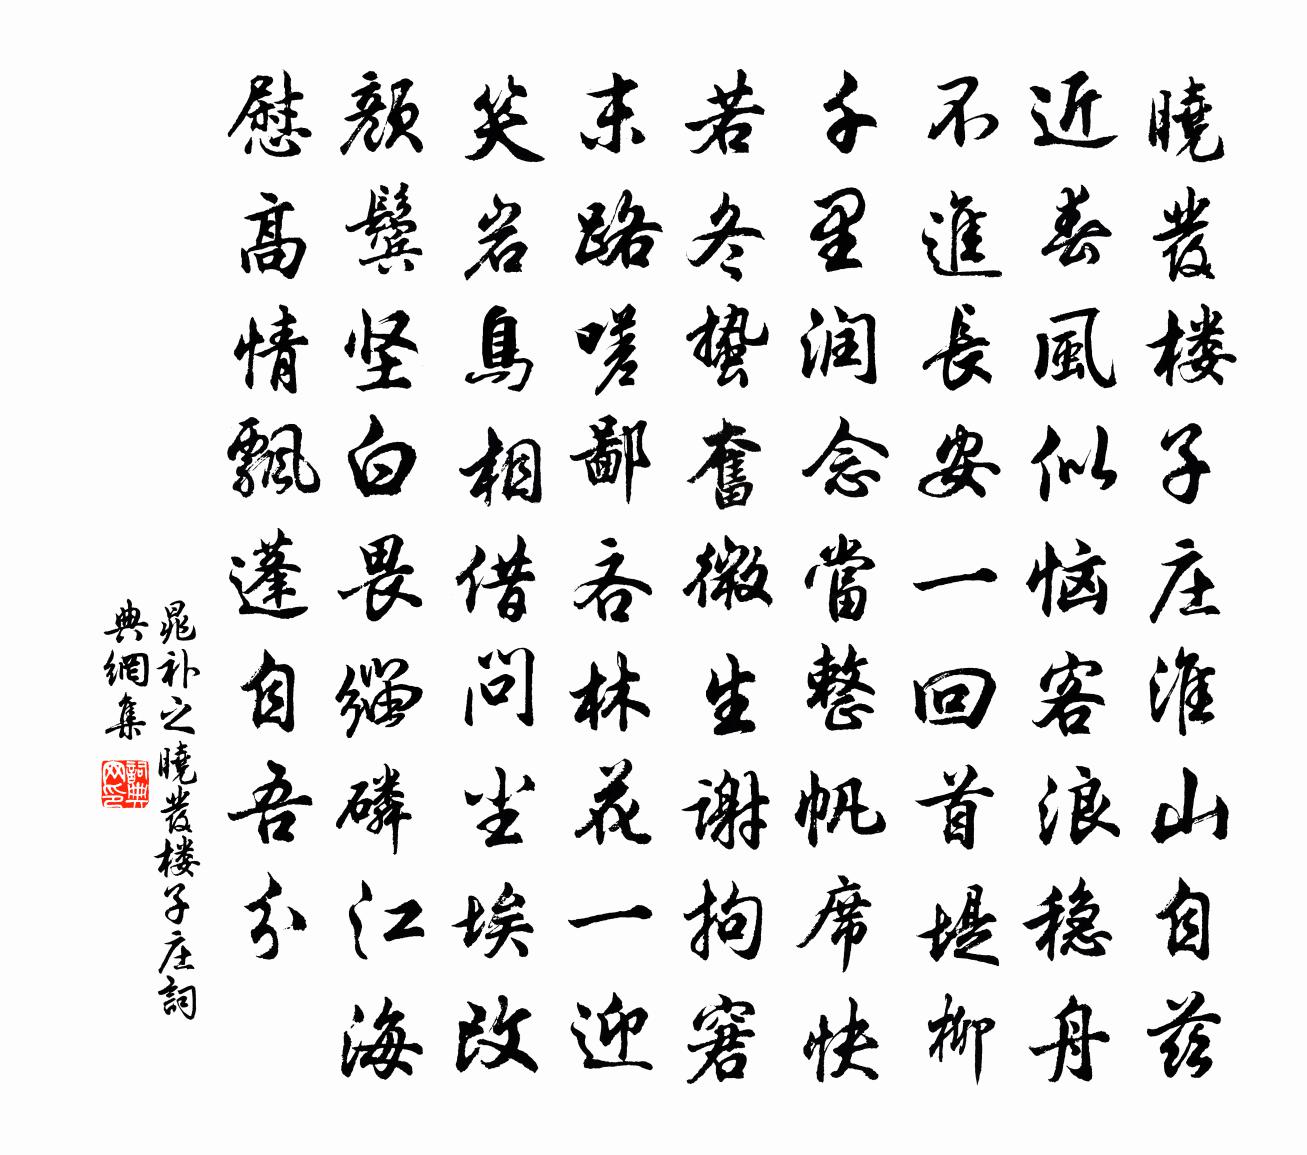 曉發楼子庄淮山自茲
近春風似恼客浪稳舟
不進長安一回首堤柳
千里润念當整帆席快
若冬蛰奮微生谢拘窘
末路嗟鄙吝林花一迎
笑岩鳥相借問尘埃改
颜鬓坚白畏缁磷江海
慰高情飄蓬自吾分
晁补之曉發楼子庄詞
典網集
詞典网印